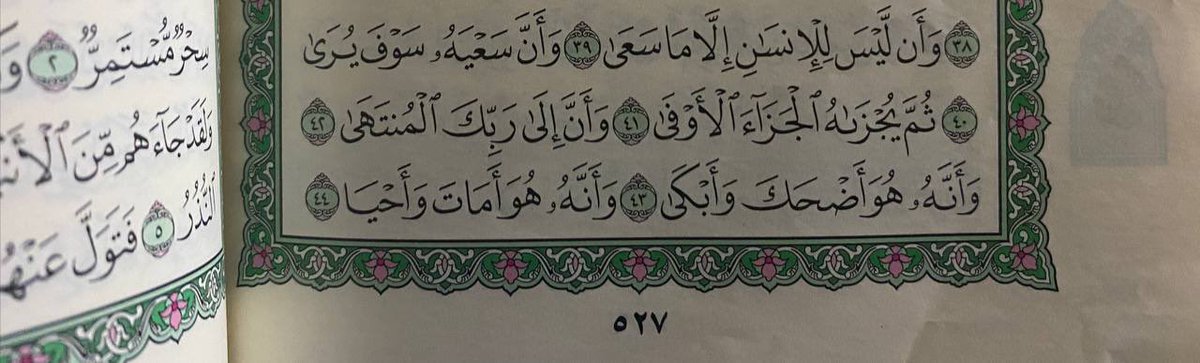 ٣٨ وَأَن لَّيۡسَ لِلۡإِنسَٰنِ إِلَّا مَا سَعَىٰ ٣٩ وَأَنَّ سَعۡيَهُۥ سَوۡفَ يُرَىٰ
٤٠ ثُمَّ يُجۡزَىٰهُ ٱلۡجَزَآءَ ٱلۡأَوۡفَىٰ ٤١ وَأَنَّ إِلَىٰ رَبِّكَ ٱلۡمُنتَهَىٰ ٤٢
وَأَنَّهُۥ هُوَ أَضۡحَكَ وَأَبۡكَىٰ ٤٣ وَأَنَّهُۥ هُوَ أَمَاتَ وَأَحۡيَا ٤٤
٥٢٧
سِحۡرٞ مُّسۡتَمِرّٞ ٢
وَلَقَدۡ جَآءَهُم مِّنَ
ٱلنُّذُرُ ٥ فَتَوَلَّ عَنۡهُمۡ